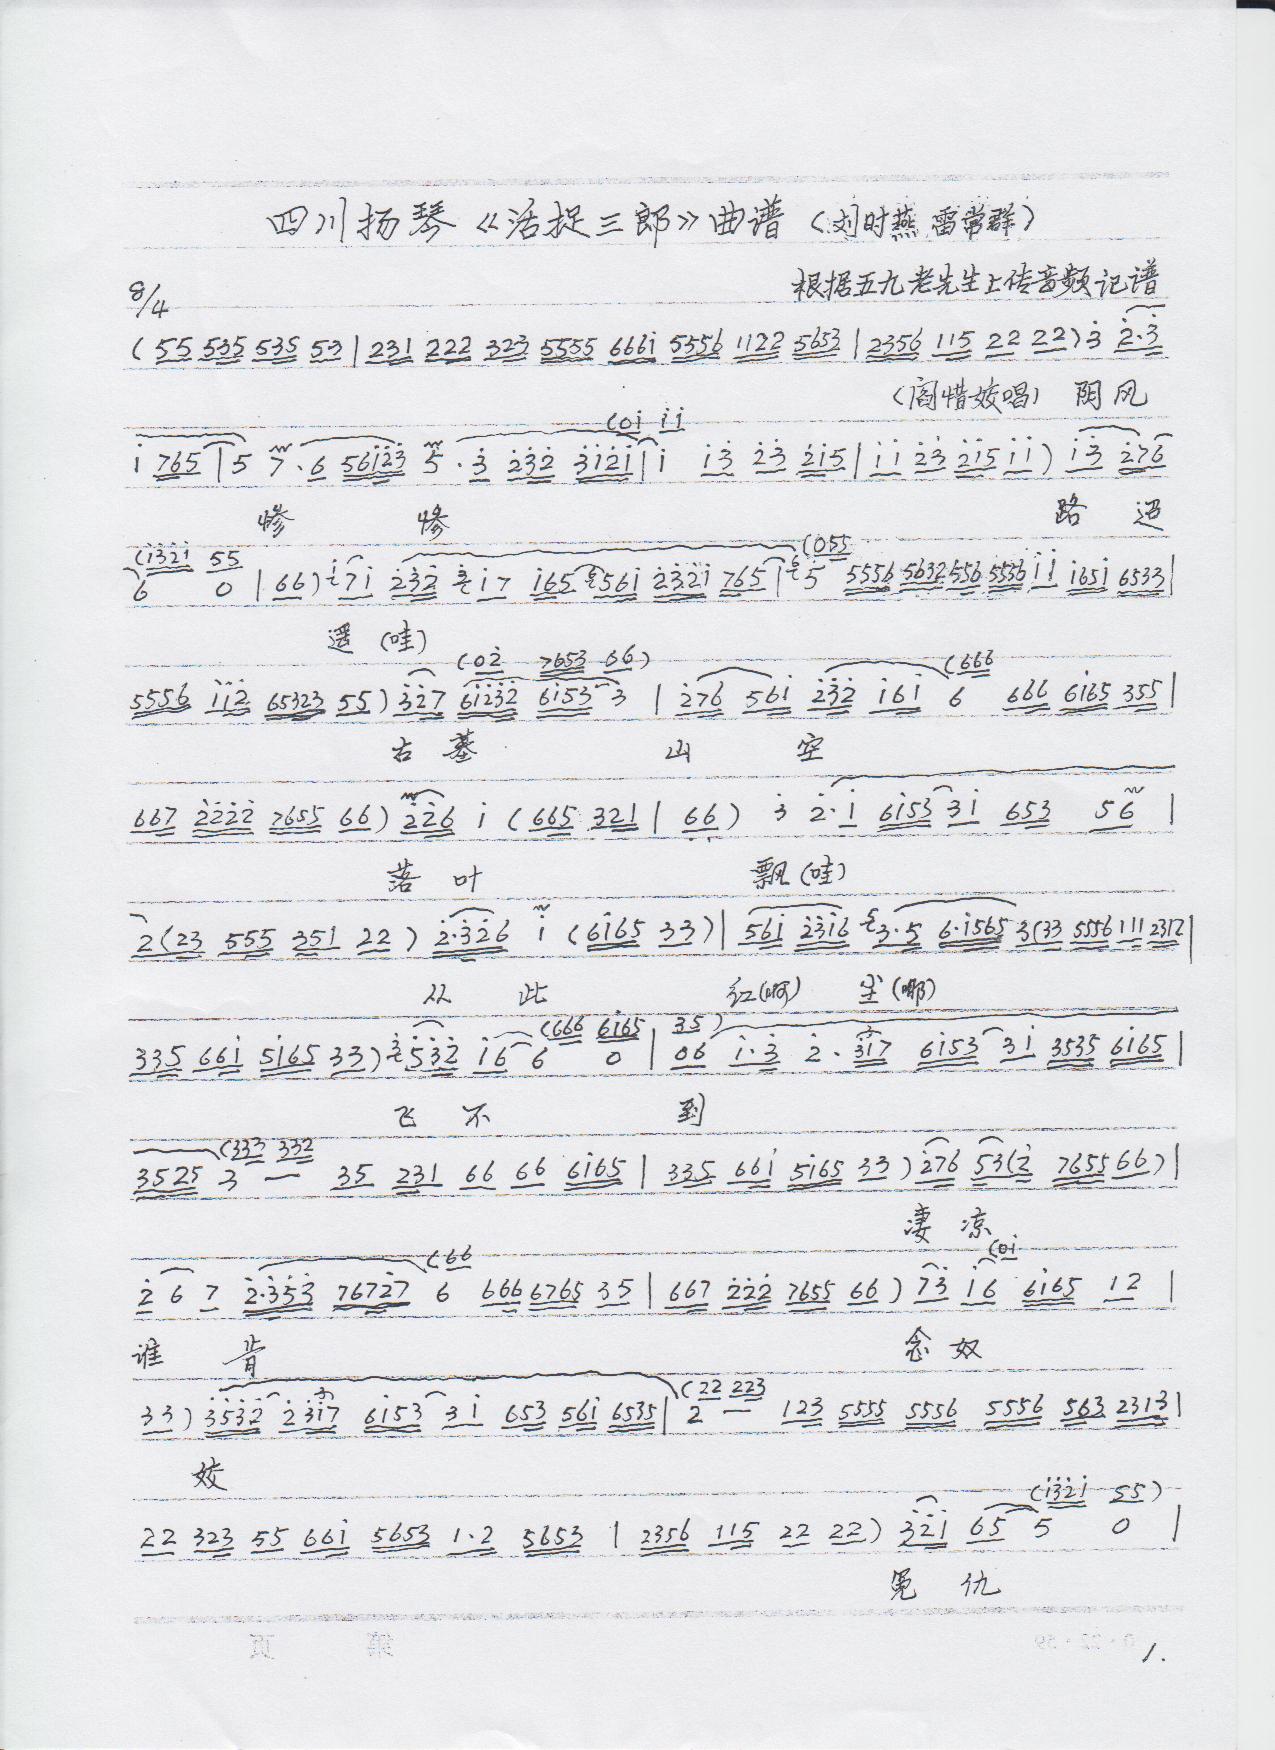 四川扬琴《活捉三郎》曲谱（刘时燕 雷常群）
8/4 根据五九老先生上传音频记谱
(55 535 535 53|231 222 323 5555 666i 5556 1122 5653|2356 115 22 22)3 2·3
（阎惜姣唱）阴风
(0i ii
i 765|5 7·6 56i23 5·3 232 3i2i|i i3 23 2i5|ii 23 2i5 ii) i3 276
惨 惨 路 迢
(i32i 55 (055
6 0|66) 7i 232 i7 i65 56i 232i 765|5 5556 5632 556 5556 ii i65i 6533|
遥（哇）
(02 7653 06)
5556 ii2 65323 55) 327 6i232 6i53 3|276 56i 232 i6i 6 666 6i65 355|
(666
古墓 山 空
667 2222 7655 66) 226 i (665 321|66) 3 2·i 6i53 3i 653 56|
落叶 飘（哇）
2(23 555 351 22) 2·326 i (6i65 33)|56i 23i6 3·5 6·i565 3(33 5556 111 2317|
从 此 红（啊） 尘（哪）
(666 6i65 35)
335 66i 5i65 33) 532 i6 6 0|06 i·3 2·3i7 6i53 3i 3535 6i65|
飞 不 到
(333 332
3525 3 — 35 231 66 66 6i65|335 66i 5i65 33) 276 53(2 7655 66)|
凄 凉
(66 (0i
2 6 7 2·353 76727 6 666 6765 35|667 222 7655 66) 73 i6 6i65 12|
谁 肯 念奴
(22 223
33) 3532 23i7 6i53 3i 653 56i 6535|2 — 123 5555 5556 5556 563 2313|
姣
(i32i 55)
22 323 55 66i 5653 1·2 5653|2356 115 22 22) 32i 65 5 0|
冤 仇
第 页
1.